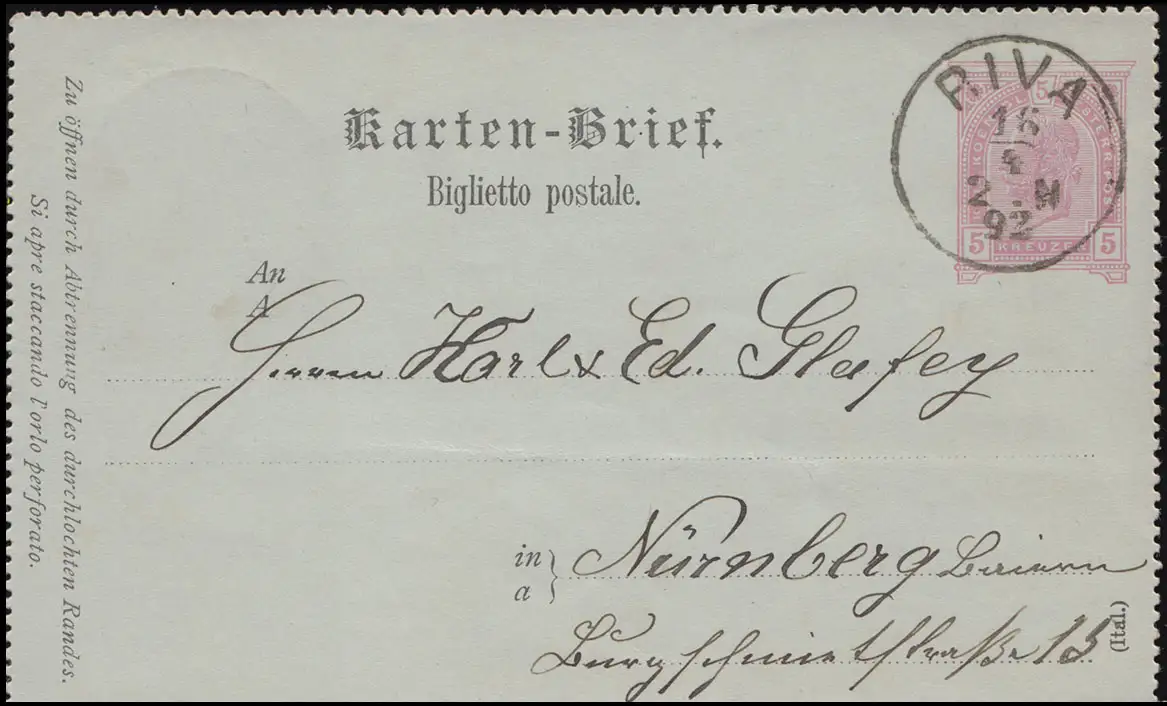 Karten-Brief.
Biglietto postale.
RIVA
16
2.N
92
5
5 KREUZER 5
An
A
Herren Karl & Ed. Glafey
in
a
Nürnberg Baiern
Burgschmietstraße 15
(Ital.)
Zu öffnen durch Abtrennung des durchlochten Randes.
Si apre staccando l'orlo perforato.